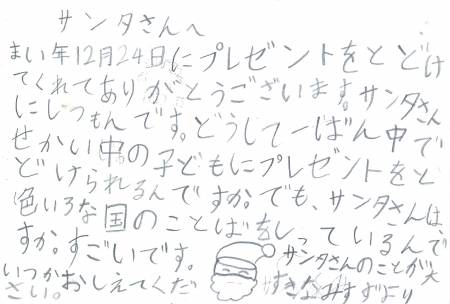 サンタさんへ
まい年12月24日にプレゼントをとどけ
てくれてありがとうございます。サンタさん
にしつもんです。どうして一ばん中で
せかい中の子どもにプレゼントをと
どけられるんですか。でも、サンタさんは、
色いろな国のことばをしっているんで
すか。すごいです。
いつかおしえてくだ
さい。
サンタさんのことが大
すきなみすずより